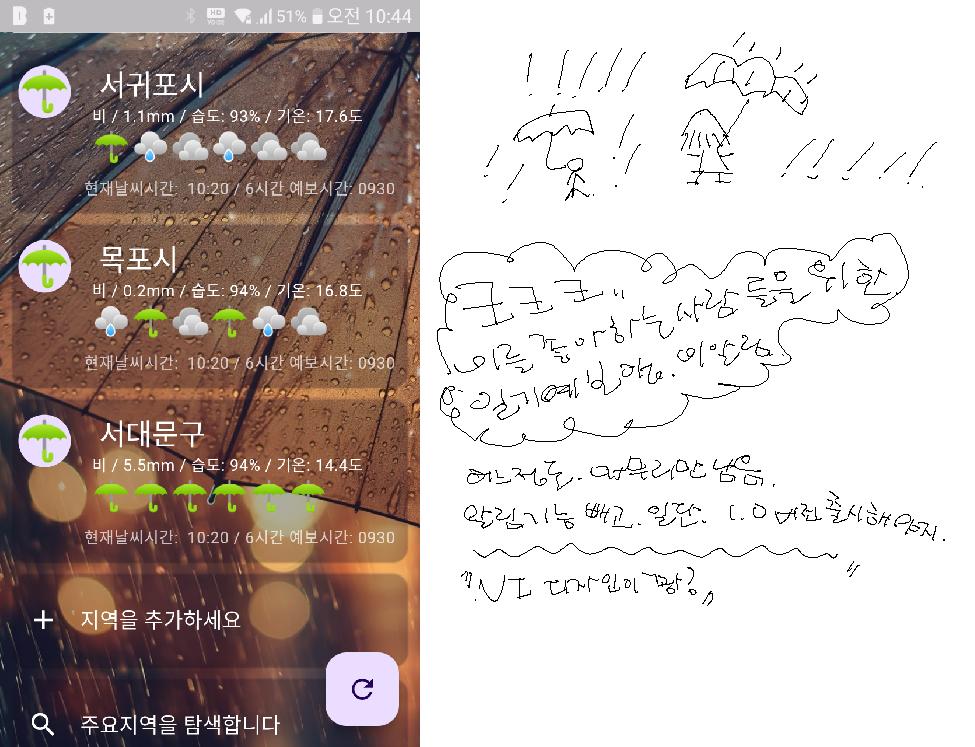 51% 오전 10:44
서귀포시
비 / 1.1mm / 습도: 93% / 기온: 17.6도
현재날씨시간: 10:20 / 6시간 예보시간: 0930
목포시
비 / 0.2mm / 습도: 94% / 기온: 16.8도
현재날씨시간: 10:20 / 6시간 예보시간: 0930
서대문구
비 / 5.5mm / 습도: 94% / 기온: 14.4도
현재날씨시간: 10:20 / 6시간 예보시간: 0930
+ 지역을 추가하세요
주요지역을 탐색합니다
비를 좋아하는 사람들을 위한
일기예보 아. 비알림
어느정도. 마무리만 남음.
알림기능 빼고. 일단. 1.0 버전 출시해야지.
"UI 디자인이 짱?"